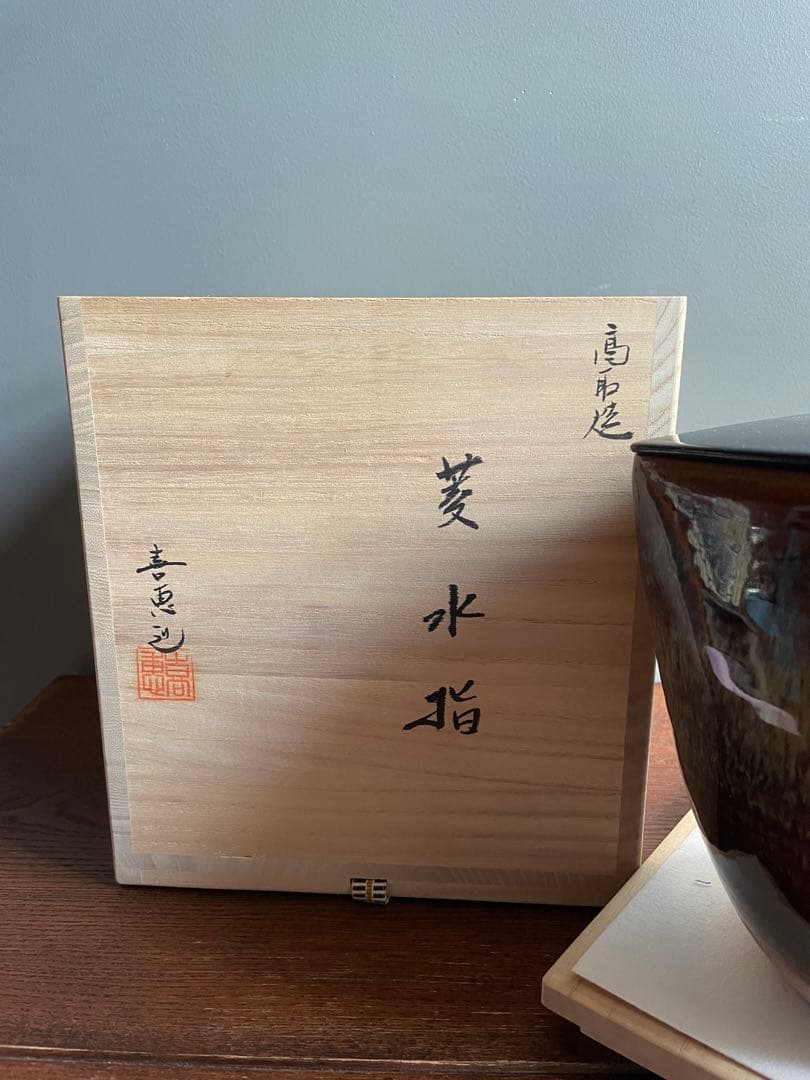 高取焼
菱水指
喜恵造
喜恵